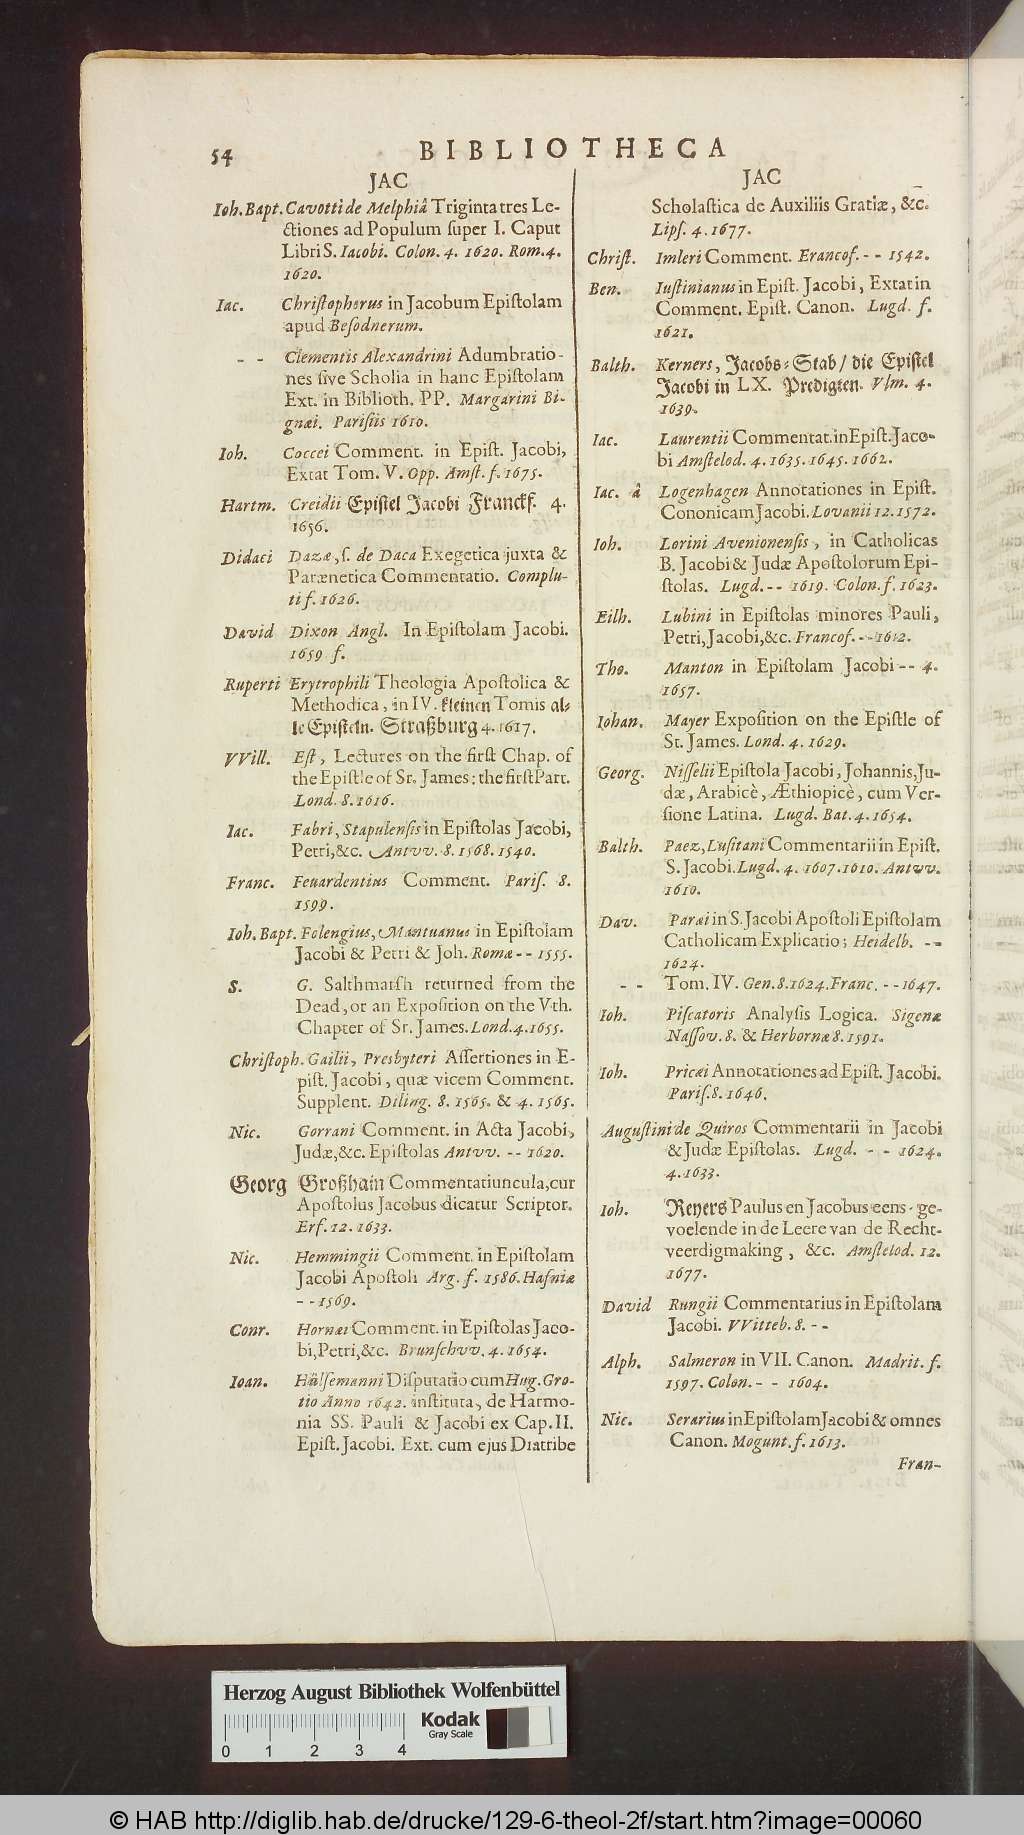 54
BIBLIOTHECA
JAC
Ioh. Bapt. Cavotti de Melphiâ Triginta tres Le-
ctiones ad Populum ſuper I. Caput
Libri S. Iacobi. Colon. 4. 1620. Rom. 4.
1620.
Iac. Chriſtophorus in Jacobum Epiſtolam
apud Beſodnerum.
- - Clementis Alexandrini Adumbratio-
nes ſive Scholia in hanc Epiſtolam
Ext. in Biblioth. PP. Margarini Bi-
gnæi. Pariſiis 1610.
Ioh. Coccei Comment. in Epiſt. Jacobi,
Extat Tom. V. Opp. Amſt. f. 1675.
Hartm. Creidii Epiſtel Jacobi Franckf. 4.
1656.
Didaci Dazæ, ſ. de Daca Exegetica juxta &
Parænetica Commentatio. Complu-
ti f. 1626.
David Dixon Angl. In Epiſtolam Jacobi.
1659 f.
Ruperti Erytrophili Theologia Apoſtolica &
Methodica, in IV. kleinen Tomis al-
le Epiſteln. Straßburg 4. 1617.
VVill. Eſt, Lectures on the firſt Chap. of
the Epiſtle of Sr. James: the firſt Part.
Lond. 8. 1616.
Iac. Fabri, Stapulenſis in Epiſtolas Jacobi,
Petri, &c. Antvv. 8. 1568. 1540.
Franc. Feuardentius Comment. Pariſ. 8.
1599.
Ioh. Bapt. Folengius, Mantuanus in Epiſtolam
Jacobi & Petri & Joh. Romæ - - 1555.
S. G. Salthmarſh returned from the
Dead, or an Expoſition on the Vth.
Chapter of Sr. James. Lond. 4. 1655.
Chriſtoph. Gailii, Presbyteri Aſſertiones in E-
piſt. Jacobi, quæ vicem Comment.
Supplent. Diling. 8. 1565. & 4. 1565.
Nic. Gorrani Comment. in Acta Jacobi,
Judæ, &c. Epiſtolas Antvv. - - 1620.
Georg Großhain Commentatiuncula, cur
Apoſtolus Jacobus dicatur Scriptor.
Erf. 12. 1633.
Nic. Hemmingii Comment. in Epiſtolam
Jacobi Apoſtoli Arg. f. 1586. Hafniæ
- - 1569.
Conr. Hornæi Comment. in Epiſtolas Jaco-
bi, Petri, &c. Brunſchvv. 4. 1654.
Ioan. Hülſemanni Diſputatio cum Hug. Gro-
tio Anno 1642. inſtituta, de Harmo-
nia SS. Pauli & Jacobi ex Cap. II.
Epiſt. Jacobi. Ext. cum ejus Diatribe
JAC
Scholaſtica de Auxiliis Gratiæ, &c.
Lipſ. 4. 1677.
Chriſt. Imleri Comment. Francof. - - 1542.
Ben. Iuſtinianus in Epiſt. Jacobi, Extat in
Comment. Epiſt. Canon. Lugd. f.
1621.
Balth. Kerners, Jacobs-Stab / die Epiſtel
Jacobi in LX. Predigten. Vlm. 4.
1639.
Iac. Laurentii Commentat. in Epiſt. Jaco-
bi Amſtelod. 4. 1635. 1645. 1662.
Iac. â Logenhagen Annotationes in Epiſt.
Cononicam Jacobi. Lovanii 12. 1572.
Ioh. Lorini Avenionenſis, in Catholicas
B. Jacobi & Judæ Apoſtolorum Epi-
ſtolas. Lugd. - - 1619. Colon. f. 1623.
Eilh. Lubini in Epiſtolas minores Pauli,
Petri, Jacobi, &c. Francof. - - 1612.
Tho. Manton in Epiſtolam Jacobi - - 4.
1657.
Iohan. Mayer Expoſition on the Epiſtle of
St. James. Lond. 4. 1629.
Georg. Niſſelii Epiſtola Jacobi, Johannis, Ju-
dæ, Arabicè, Æthiopicè, cum Ver-
ſione Latina. Lugd. Bat. 4. 1654.
Balth. Paez, Luſitani Commentarii in Epiſt.
S. Jacobi. Lugd. 4. 1607. 1610. Antvv.
1610.
Dav. Paræi in S. Jacobi Apoſtoli Epiſtolam
Catholicam Explicatio; Heidelb. - -
1624.
- - Tom. IV. Gen. 8. 1624. Franc. - - 1647.
Ioh. Piſcatoris Analyſis Logica. Sigenæ
Naſſov. 8. & Herbornæ 8. 1591.
Ioh. Pricæi Annotationes ad Epiſt. Jacobi.
Pariſ. 8. 1646.
Auguſtini de Quiros Commentarii in Jacobi
& Judæ Epiſtolas. Lugd. - - 1624.
4. 1633.
Ioh. Reyers Paulus en Jacobus eens-ge-
voelende in de Leere van de Recht-
veerdigmaking, &c. Amſtelod. 12.
1677.
David Rungii Commentarius in Epiſtolam
Jacobi. VVitteb. 8. - -
Alph. Salmeron in VII. Canon. Madrit. f.
1597. Colon. - - 1604.
Nic. Serarius in Epiſtolam Jacobi & omnes
Canon. Mogunt. f. 1613.
Fran-
Herzog August Bibliothek Wolfenbüttel
Kodak
Gray Scale
0 1 2 3 4
© HAB http://diglib.hab.de/drucke/129-6-theol-2f/start.htm?image=00060